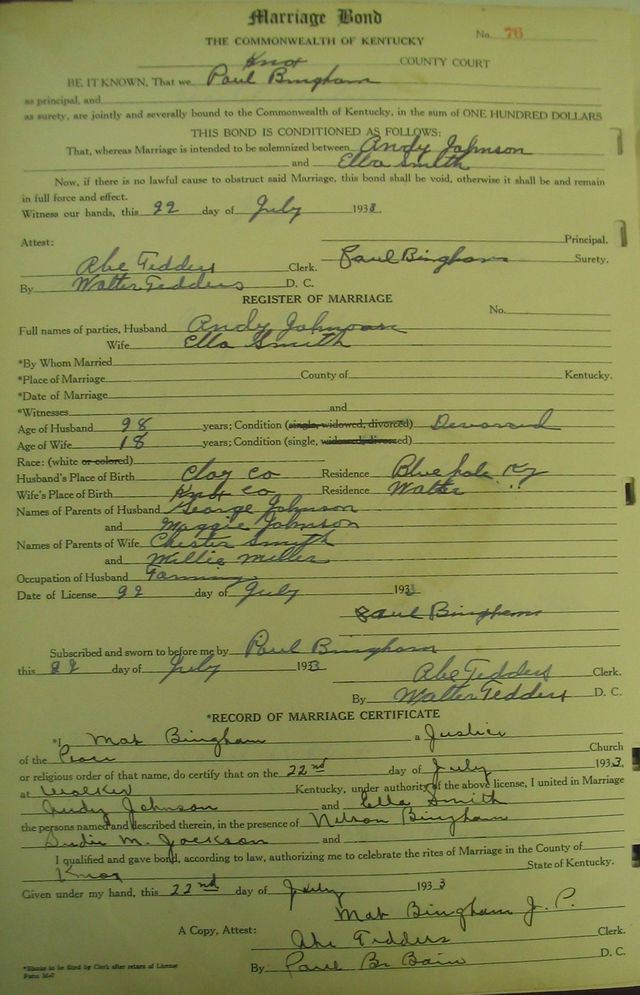 Marriage Bond
No. 76
THE COMMONWEALTH OF KENTUCKY
Knox COUNTY COURT
BE IT KNOWN, That we Paul Bingham
as principal, and
as surety, are jointly and severally bound to the Commonwealth of Kentucky, in the sum of ONE HUNDRED DOLLARS
THIS BOND IS CONDITIONED AS FOLLOWS:
That, whereas Marriage is intended to be solemnized between Andy Johnson
and Ella Smith
Now, if there is no lawful cause to obstruct said Marriage, this bond shall be void, otherwise it shall be and remain
in full force and effect.
Witness our hands, this 22 day of July 1933.
Principal.
Attest: Paul Bingham Surety.
Abe Tedders Clerk.
By Walter Tedders D. C.
REGISTER OF MARRIAGE
No.
Full names of parties, Husband Andy Johnson
Wife Ella Smith
*By Whom Married
*Place of Marriage County of Kentucky.
*Date of Marriage
*Witnesses and
Age of Husband 28 years; Condition (single, widowed, divorced) Devorced
Age of Wife 18 years; Condition (single, widowed, divorced)
Race: (white or colored)
Husband's Place of Birth Clay Co Residence Blue hole Ky
Wife's Place of Birth Knox Co Residence Walker "
Names of Parents of Husband George Johnson
and Maggie Johnson
Names of Parents of Wife Chester Smith
and Millie Miller
Occupation of Husband Farming
Date of License 22 day of July 1933
Paul Bingham
Subscribed and sworn to before me by Paul Bingham
this 22 day of July 1933
Abe Tedders Clerk.
By Walter Tedders D. C.
*RECORD OF MARRIAGE CERTIFICATE
*I Mat Bingham a Justice
of the Peace Church
or religious order of that name, do certify that on the 22nd day of July 1933.
at Walker Kentucky, under authority of the above license, I united in Marriage
Andy Johnson and Ella Smith
the persons named and described therein, in the presence of Nelson Bingham
Sudie M. Jackson and
I qualified and gave bond, according to law, authorizing me to celebrate the rites of Marriage in the County of
Knox State of Kentucky.
Given under my hand, this 22nd day of July 1933
Mat Bingham J. P.
A Copy, Attest: Abe Tedders Clerk.
By Paul B. Bain D. C.
*Blanks to be filled by Clerk after return of License